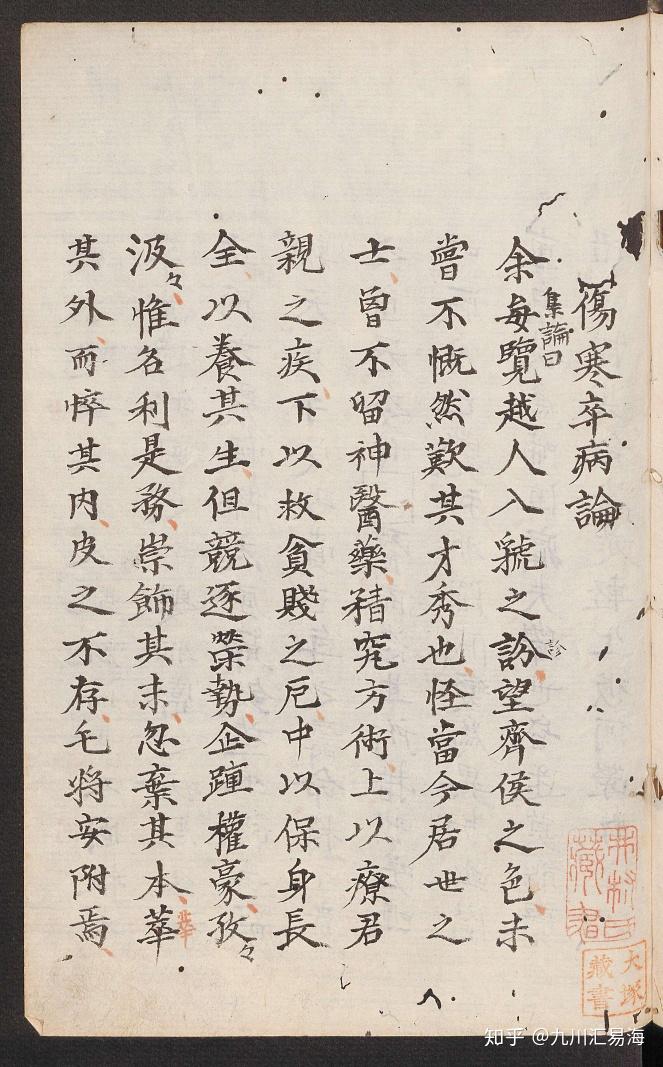 傷寒卒病論
集論曰
余每覽越人入虢之訡望齊侯之色未
診
嘗不慨然歎其才秀也怪當今居世之
士曽不留神醫藥精究方術上以療君
親之疾下以救貧賤之厄中以保身長
全以養其生但競逐榮勢企踵權豪孜々
汲々惟名利是務崇飾其末忽棄其本華
華
其外而悴其内皮之不存毛將安附焉
藏書
大塚藏書
知乎 @九川汇易海